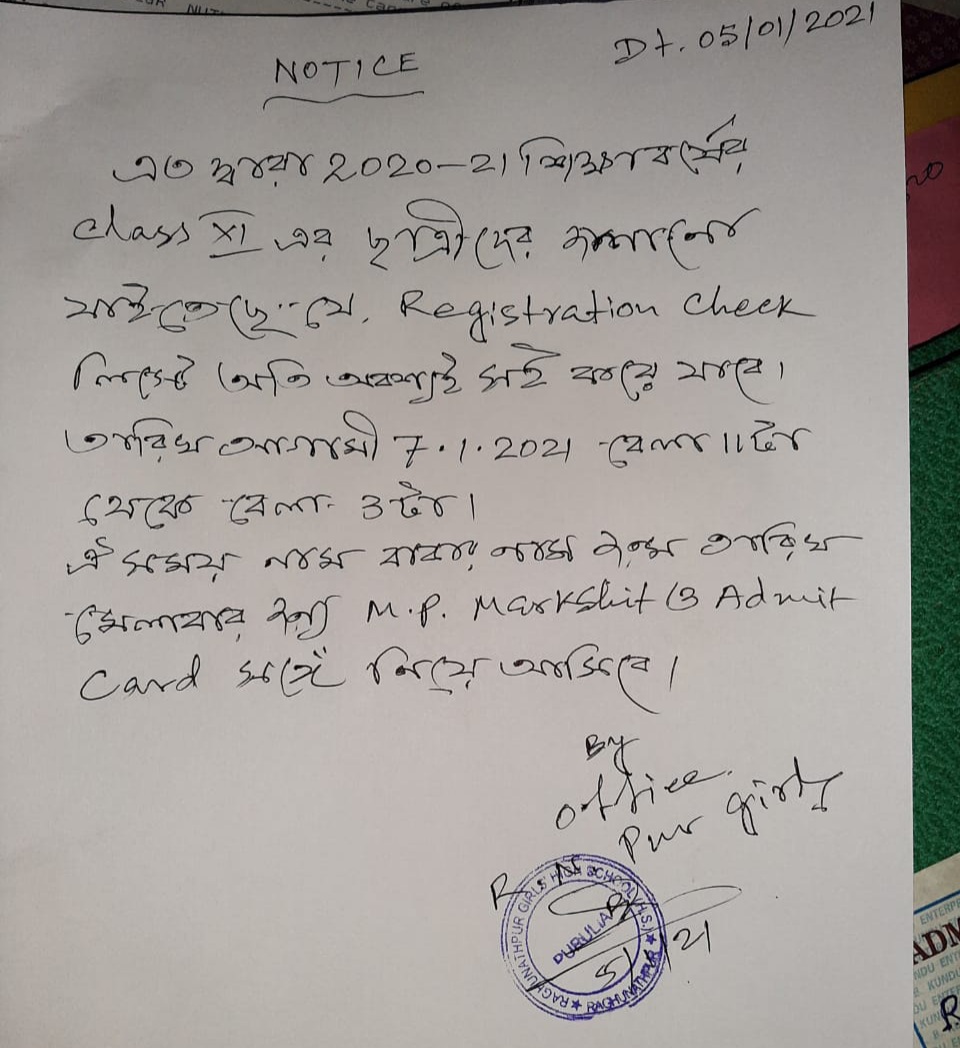 NOTICE
Dt. 05/01/2021
এত দ্বারা 2020-21 শিক্ষাবর্ষের
Class XI এর ছাত্রীদের জানানো
যাইতেছে যে, Registration Check
লিস্টে অতি অবশ্যই সই করে যাবে।
তারিখ আগামী 7.1.2021 বেলা 11টা
থেকে বেলা 3টা।
ঐ সময় নাম বাবার নাম জন্ম তারিখ
মেলাবার জন্য M.P. Markshit ও Admit
Card সঙ্গে নিয়ে আসিবে।
By
Office
R.N. Pur girls
RAGHUNATHPUR GIRLS' HIGH SCHOOL (H.S.)
PURULIA
RAGHUNATHPUR
5/1/21
ENTERPR
ADM
KUNDU